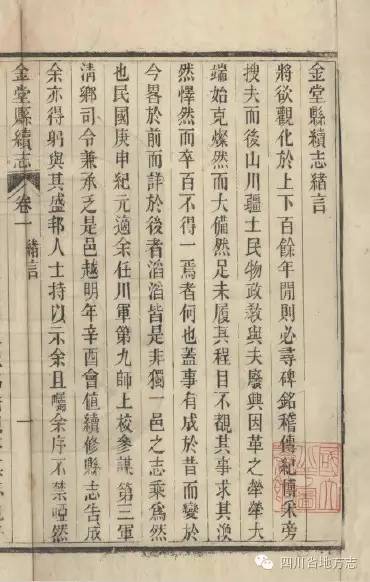 金堂縣續志緒言
將欲觀化於上下百餘年閒則必尋碑銘稽傳紀博采旁
搜夫而後山川疆土民物政敎與夫廢興因革之犖犖大
端始克燦然而大備然足未履其程目不覩其事求其渙
然懌然而卒百不得一焉者何也蓋事有成於昔而變於
今畧於前而詳於後者滔滔皆是非獨一邑之志乘爲然
也民國庚申紀元適余任川軍第九師上校參謀第三軍
淸鄉司令兼承乏是邑越明年辛酉會值續修縣志告成
余亦得躬與其盛邦人士持以示余且囑余序不禁啞然
金堂縣續志
卷一
緒言
一
四川省地方志